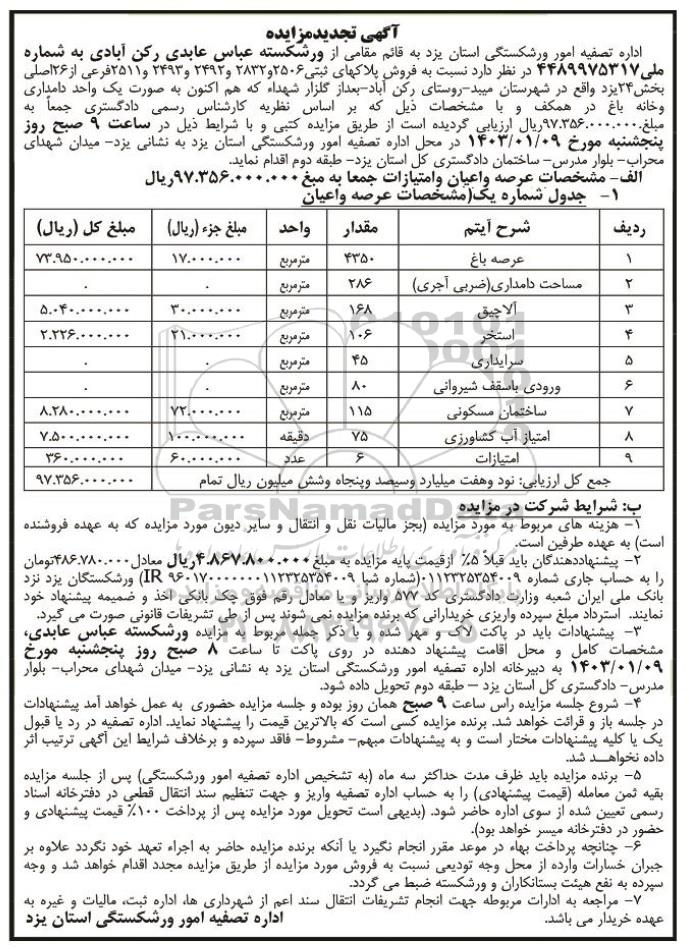 آگهی تجدیدمزایده
اداره تصفیه امور ورشکستگی استان یزد به قائم مقامی از ورشکسته عباس عابدی رکن آبادی به شماره
ملی۴۴۸۹۹۷۵۳۱۷ در نظر دارد نسبت به فروش پلاکهای ثبتی۲۵۰۶و۲۸۳۲ و۲۴۹۲ و۲۴۹۳ و۲۵۱۱فرعی از۲۶اصلی
بخش۲۴یزد واقع در شهرستان میبد-روستای رکن آباد-بعداز گلزار شهداء که هم اکنون به صورت یک واحد دامداری
وخانه باغ در همکف و با مشخصات ذیل که بر اساس نظریه کارشناس رسمی دادگستری جمعاً به
مبلغ۹۷.۳۵۶.۰۰۰.۰۰۰ریال ارزیابی گردیده است از طریق مزایده کتبی و با شرایط ذیل در ساعت ۹ صبح روز
پنجشنبه مورخ ۱۴۰۳/۰۱/۰۹ در محل اداره تصفیه امور ورشکستگی استان یزد به نشانی یزد- میدان شهدای
محراب- بلوار مدرس- ساختمان دادگستری کل استان یزد- طبقه دوم اقدام نماید.
الف- مشخصات عرصه واعیان وامتیازات جمعا به مبغ۹۷.۳۵۶.۰۰۰.۰۰۰ریال
۱- جدول شماره یک(مشخصات عرصه واعیان
ردیف شرح آیتم مقدار واحد مبلغ جزء (ریال) مبلغ کل (ریال)
۱ عرصه باغ ۴۳۵۰ مترمربع ۱۷.۰۰۰.۰۰۰ ۷۳.۹۵۰.۰۰۰.۰۰۰
۲ مساحت دامداری(ضربی آجری) ۲۸۶ مترمربع . .
۳ آلاچیق ۱۶۸ مترمربع ۳۰.۰۰۰.۰۰۰ ۵.۰۴۰.۰۰۰.۰۰۰
۴ استخر ۱۰۶ مترمربع ۲۱.۰۰۰.۰۰۰ ۲.۲۲۶.۰۰۰.۰۰۰
۵ سرایداری ۴۵ مترمربع . .
۶ ورودی باسقف شیروانی ۸۰ مترمربع . .
۷ ساختمان مسکونی ۱۱۵ مترمربع ۷۲.۰۰۰.۰۰۰ ۸.۲۸۰.۰۰۰.۰۰۰
۸ امتیاز آب کشاورزی ۷۵ دقیقه ۱۰۰.۰۰۰.۰۰۰ ۷.۵۰۰.۰۰۰.۰۰۰
۹ امتیازات ۶ عدد ۶۰.۰۰۰.۰۰۰ ۳۶۰.۰۰۰.۰۰۰
جمع کل ارزیابی: نود وهفت میلیارد وسیصد وپنجاه وشش میلیون ریال تمام ۹۷.۳۵۶.۰۰۰.۰۰۰
ب: شرایط شرکت در مزایده
۱- هزینه های مربوط به مورد مزایده (بجز مالیات نقل و انتقال و سایر دیون مورد مزایده که به عهده فروشنده
است) به عهده طرفین است.
۲- پیشنهاددهندگان باید قبلاً ۵٪ ازقیمت پایه مزایده به مبلغ۴.۸۶۷.۸۰۰.۰۰۰ریال معادل۴۸۶.۷۸۰.۰۰۰تومان
را به حساب جاری شماره ۰۱۱۲۳۲۵۳۵۴۰۰۹(شماره شبا IR ۹۶۰۱۷۰۰۰۰۰۰۰۱۱۲۳۲۵۳۵۴۰۰۹) ورشکستگان یزد نزد
بانک ملی ایران شعبه وزارت دادگستری کد ۵۷۷ واریز و یا معادل رقم فوق چک بانکی اخذ و ضمیمه پیشنهاد خود
نمایند. استرداد مبلغ سپرده واریزی خریدارانی که برنده مزایده نمی شوند پس از طی تشریفات قانونی صورت می گیرد.
۳- پیشنهادات باید در پاکت لاک و مهر شده و با ذکر جمله مربوط به مزایده ورشکسته عباس عابدی،
مشخصات کامل و محل اقامت پیشنهاد دهنده در روی پاکت تا ساعت ۸ صبح روز پنجشنبه مورخ
۱۴۰۳/۰۱/۰۹ به دبیرخانه اداره تصفیه امور ورشکستگی استان یزد به نشانی یزد- میدان شهدای محراب- بلوار
مدرس- دادگستری کل استان یزد – طبقه دوم تحویل داده شود.
۴- شروع جلسه مزایده راس ساعت ۹ صبح همان روز بوده و جلسه مزایده حضوری به عمل خواهد آمد پیشنهادات
در جلسه باز و قرائت خواهد شد. برنده مزایده کسی است که بالاترین قیمت را پیشنهاد نماید. اداره تصفیه در رد یا قبول
یک یا کلیه پیشنهادات مختار است و به پیشنهادات مبهم- مشروط- فاقد سپرده و برخلاف شرایط این آگهی ترتیب اثر
داده نخواهد شد.
۵- برنده مزایده باید ظرف مدت حداکثر سه ماه (به تشخیص اداره تصفیه امور ورشکستگی) پس از جلسه مزایده
بقیه ثمن معامله (قیمت پیشنهادی) را به حساب اداره تصفیه واریز و جهت تنظیم سند انتقال قطعی در دفترخانه اسناد
رسمی تعیین شده از سوی اداره حاضر شود. (بدیهی است تحویل مورد مزایده پس از پرداخت ۱۰۰٪ قیمت پیشنهادی و
حضور در دفترخانه میسر خواهد بود).
۶- چنانچه پرداخت بهاء در موعد مقرر انجام نگیرد یا آنکه برنده مزایده حاضر به اجراء تعهد خود نگردد علاوه بر
جبران خسارات وارده از محل وجه تودیعی نسبت به فروش مورد مزایده از طریق مزایده مجدد اقدام خواهد شد و وجه
سپرده به نفع هیئت بستانکاران و ورشکسته ضبط می گردد.
۷- مراجعه به ادارات مربوطه جهت انجام تشریفات انتقال سند اعم از شهرداری ها، اداره ثبت، مالیات و غیره به
عهده خریدار می باشد. اداره تصفیه امور ورشکستگی استان یزد
ParsNamadData